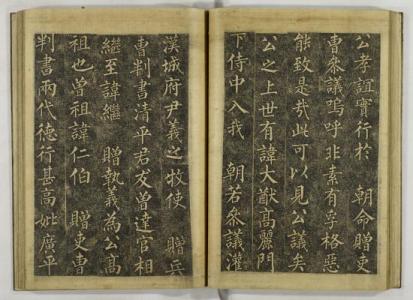 公孝誼實行於 朝命贈吏
曹參議嗚呼非素有孚格惡
能致是哉此可以見公議矣
公之上世有諱大猷高麗門
下侍中入我 朝若參議灌
漢城府尹義之牧使 贈兵
曹判書清平君友曾達官相
繼至諱繼 贈執義為公高
祖也曾祖諱仁伯 贈吏曹
判書兩代德行甚高妣廣平